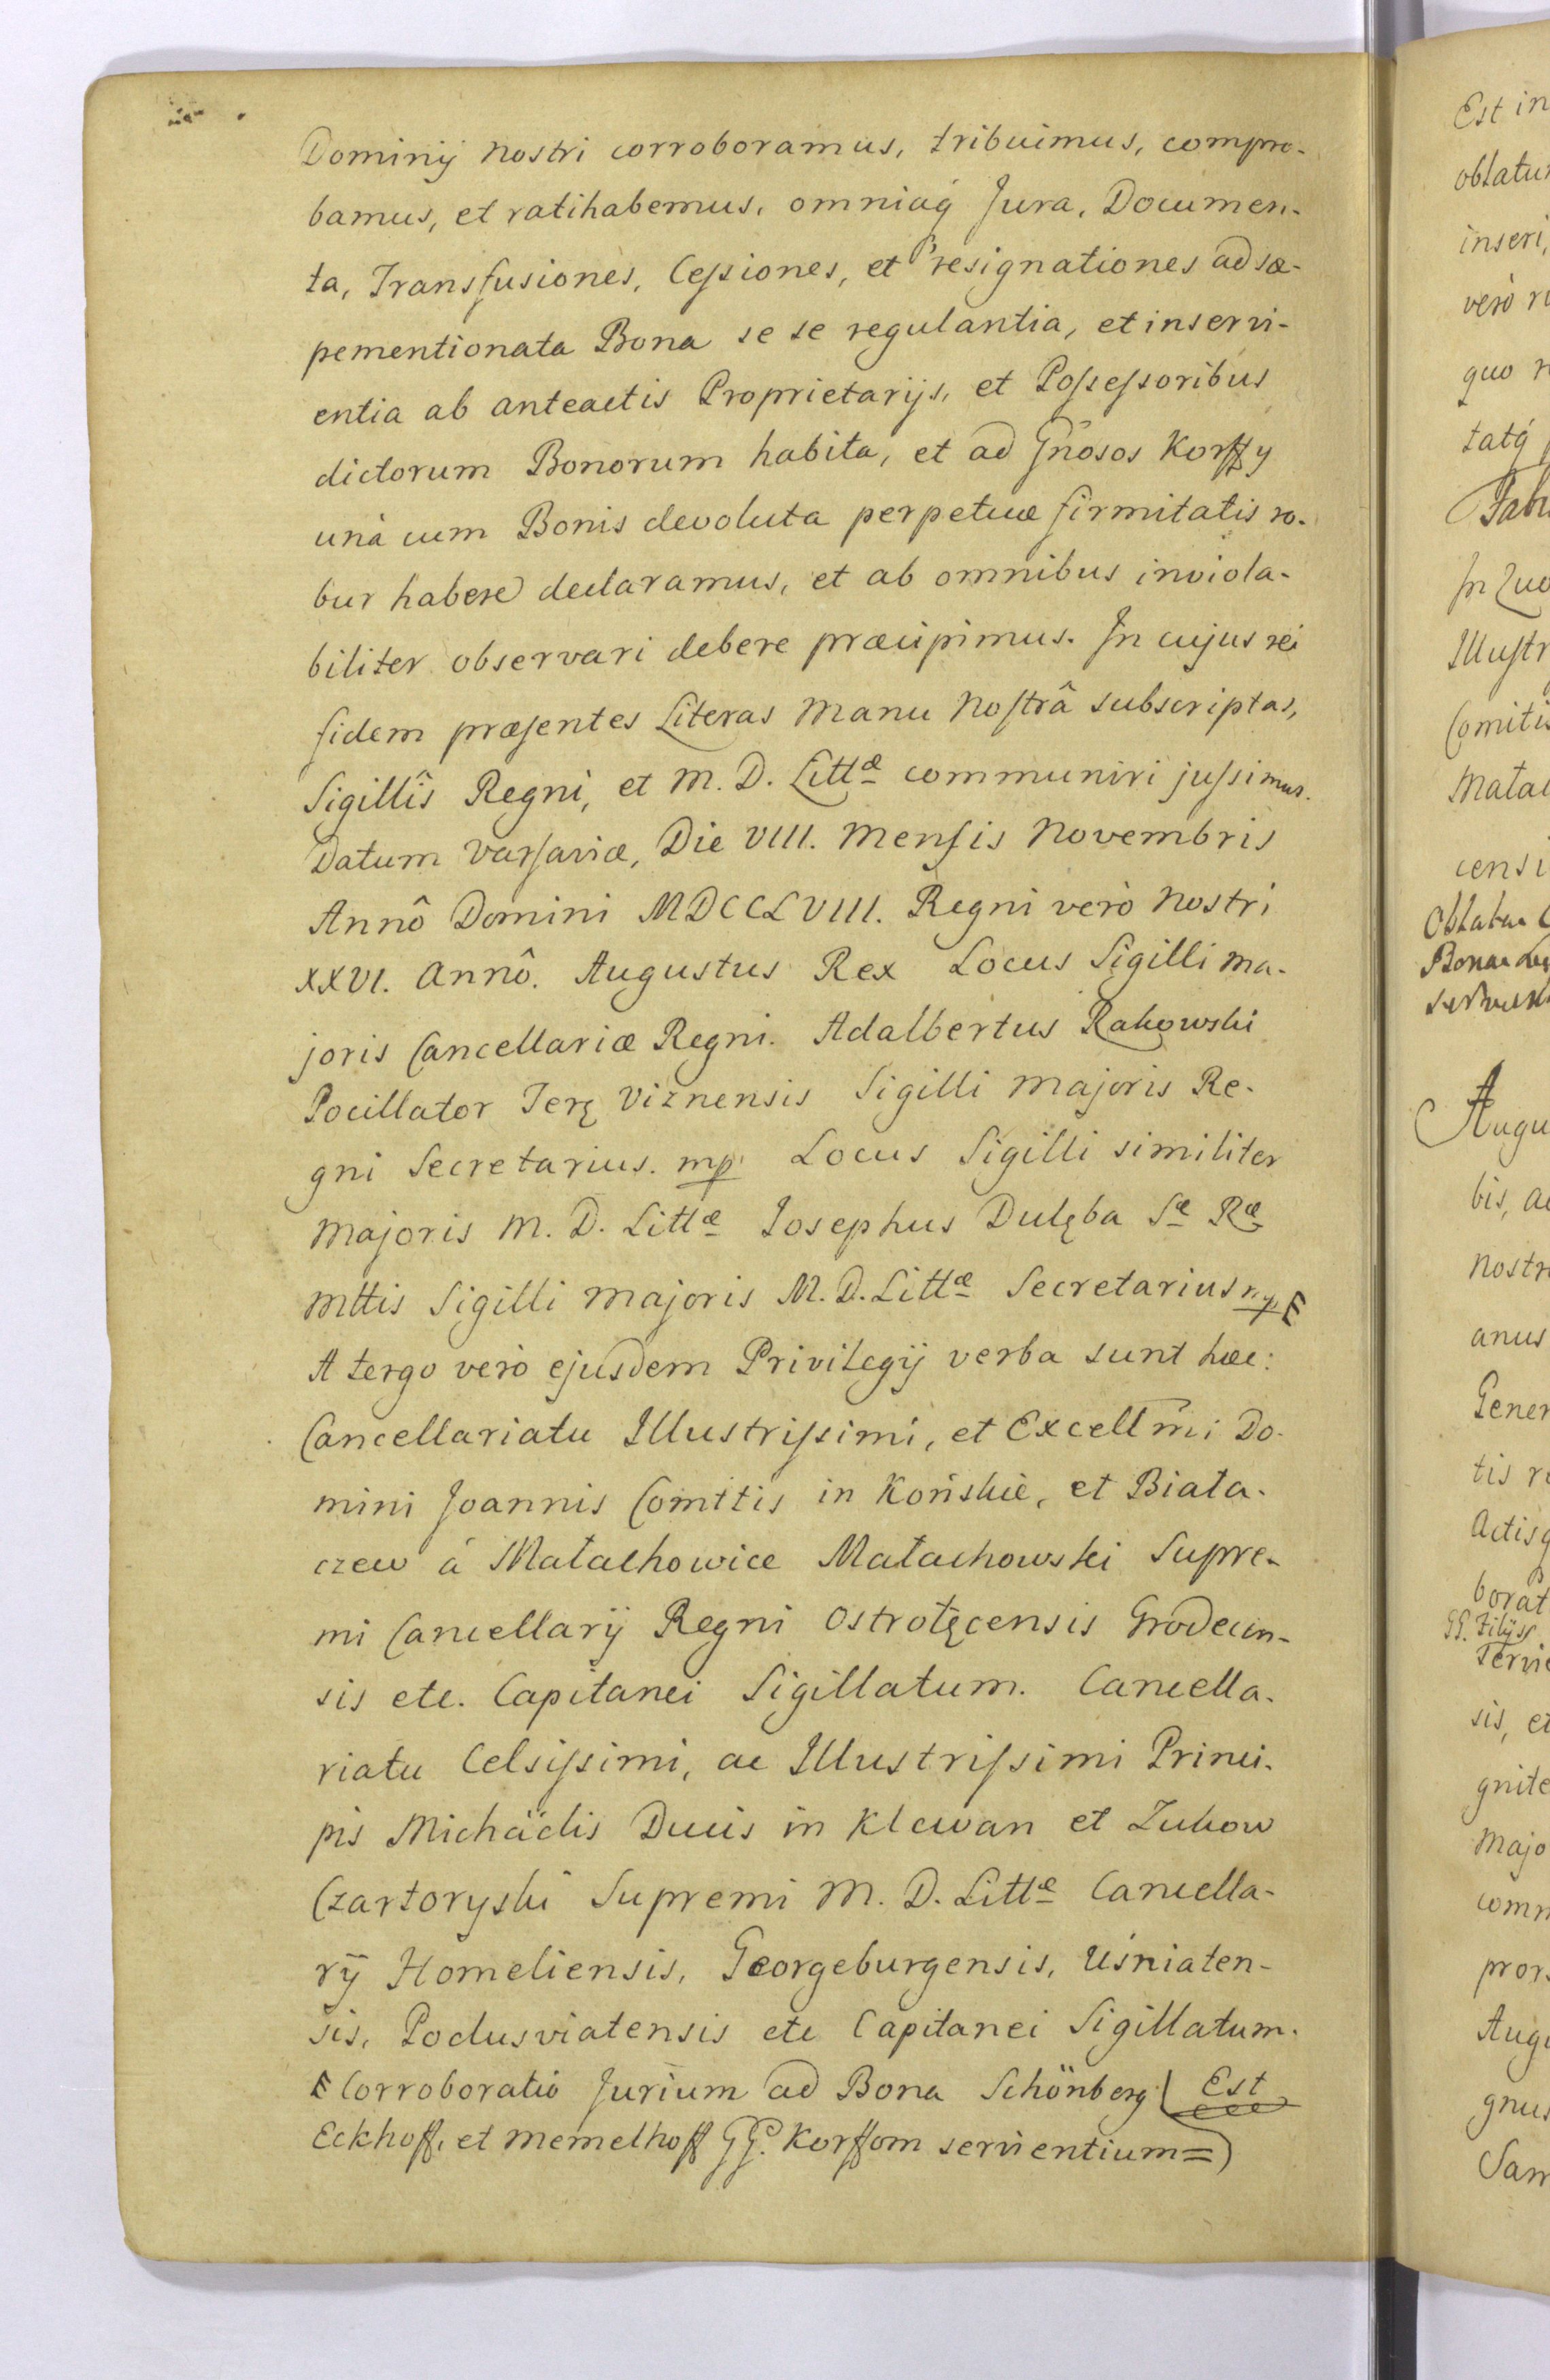 Dominij Nostri corroboramus, tribuimus, compro-
bamus, et ratihabemus, omniaq́ Jura, Documen-
ta, Transfusiones, Cessiones, et resignationes ad sæ-
pementionata Bona se se regulantia, et inservi-
entia ab anteactis Proprietarijs, et Possessoribus
dictorum Bonorum habita, et ad Gñosos Korffy
unà cum Bonis devoluta perpetuæ firmitatis ro-
bur habere declaramus, et ab omnibus inviola-
biliter observari debere præcipimus. In cujus rei
fidem præsentes Literas Manu Nostrâ subscriptas,
Sigillîs Regni, et M. D. Littæ communiri jussimus.
Datum Varsaviæ, Die VIII. Mensis Novembris
Annô Domini MDCCLVIII. Regni verò Nostri
XXVI. Annô. Augustus Rex Locus Sigilli ma-
joris Cancellariæ Regni. Adalbertus Rakowski
Pocillator Terę Viznensis Sigilli Majoris Re-
gni Secretarius. mp Locus Sigilli similiter
Majoris M. D. Littæ Josephus Dulęba Sæ Ræ
Mttis Sigilli Majoris M. D. Littæ Secretarius mp
A tergo verò ejusdem Privilegij verba sunt hæc:
Cancellariatu Illustrissimi, et Excellmi Do-
mini Joannis Comttis in Końskie, et Biała-
czew à Małachowice Małachowski Supre-
mi Cancellarij Regni Ostrołęcensis Grodecen-
sis etc. Capitanei Sigillatum. Cancella-
riatu Celsissimi, ac Illustrissimi Princi-
pis Michäelis Ducis in Klewan et Zukow
Czartoryski Supremi M. D. Littæ Cancella-
rij Homeliensis, Georgeburgensis, Uśniaten-
sis, Podusviatensis etc Capitanei Sigillatum.
Corroboratio Jurium ad Bona Schönberg Est
Eckhoff, et Memelhoff GG. Korffom servientium=
Est in
inseri,
verò
quo
Illustr
Comitis
censi
Augu
bis,
Nostr
anus
Gener
tis
borat
GG. Filijs
sis, et
gnite
Majo
comm
pror
Augu
gnus
Sam